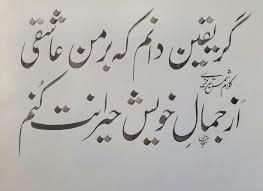 گر یقین دانم که بر من عاشقی
کلام شمس تبریزی
از جمال خویش حیرانت کنم